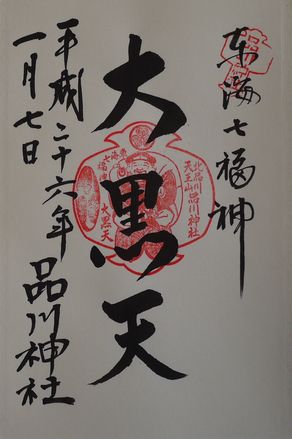 東海七福神
大黒天
北品川
天王山 品川神社
東海七福神
大黒天
平成二十六年
一月七日
品川神社